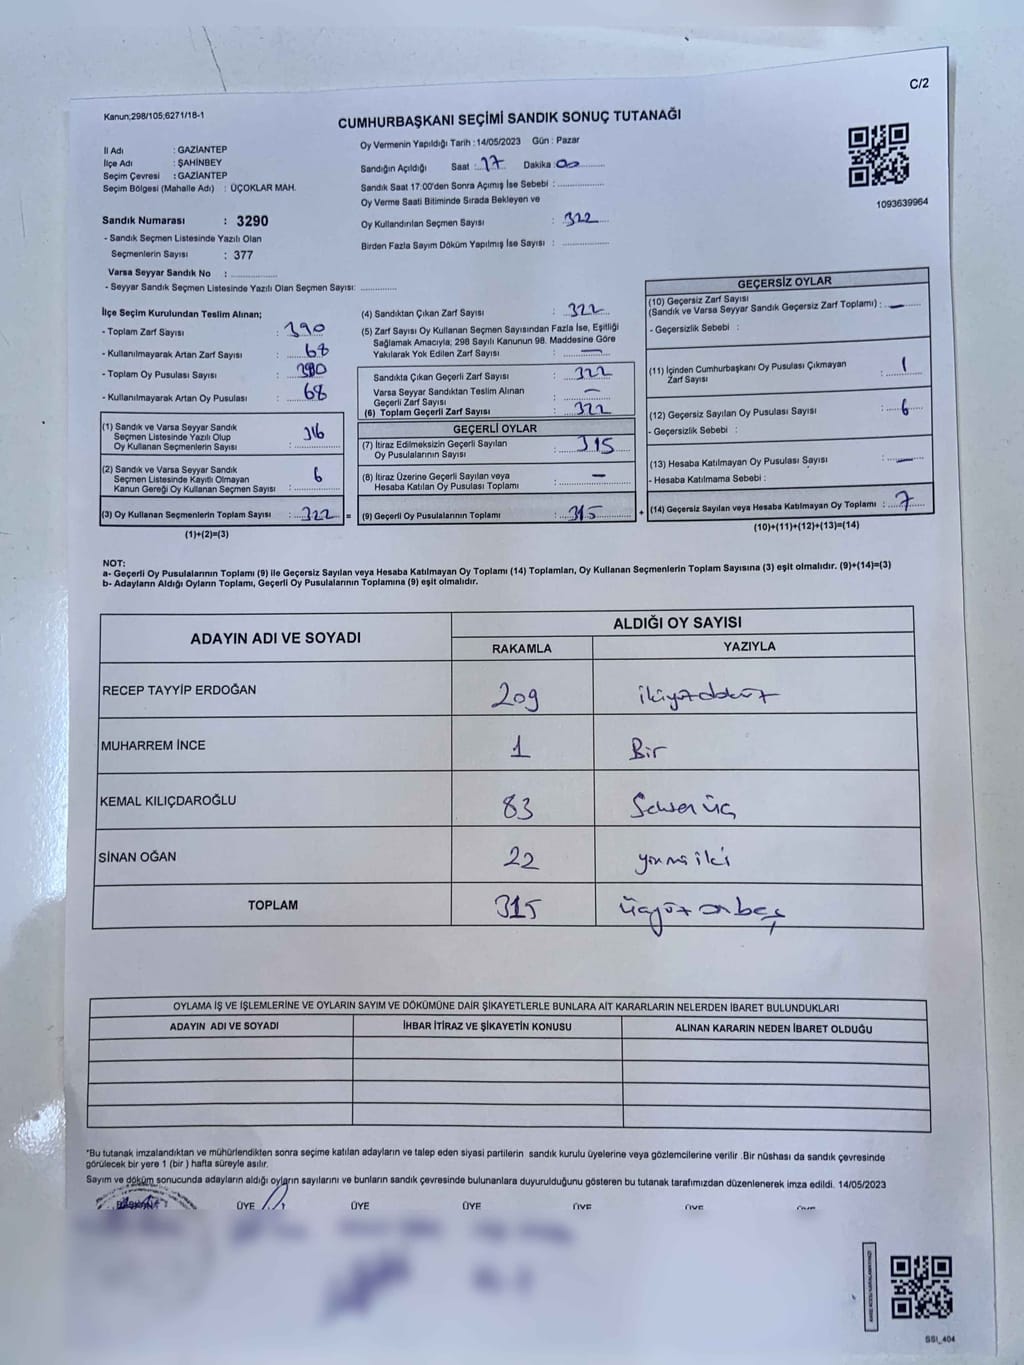 C/2
Kanun;298/105;6271/18-1
CUMHURBAŞKANI SEÇİMİ SANDIK SONUÇ TUTANAĞI
İl Adı : GAZİANTEP
İlçe Adı : ŞAHİNBEY
Seçim Çevresi : GAZİANTEP
Seçim Bölgesi (Mahalle Adı) : ÜÇOKLAR MAH.
Sandık Numarası : 3290
- Sandık Seçmen Listesinde Yazılı Olan
Seçmenlerin Sayısı : 377
Varsa Seyyar Sandık No : ..............
- Seyyar Sandık Seçmen Listesinde Yazılı Olan Seçmen Sayısı: ............
Oy Vermenin Yapıldığı Tarih : 14/05/2023 Gün : Pazar
Sandığın Açıldığı Saat : 17 Dakika : 00
Sandık Saat 17:00'den Sonra Açımış İse Sebebi : ..............
Oy Verme Saati Bitiminde Sırada Bekleyen ve
Oy Kullandırılan Seçmen Sayısı : 322
Birden Fazla Sayım Döküm Yapılmış İse Sayısı : ..............
1093639964
İlçe Seçim Kurulundan Teslim Alınan;
- Toplam Zarf Sayısı : 390
- Kullanılmayarak Artan Zarf Sayısı : 68
- Toplam Oy Pusulası Sayısı : 390
- Kullanılmayarak Artan Oy Pusulası : 68
(1) Sandık ve Varsa Seyyar Sandık
Seçmen Listesinde Yazılı Olup
Oy Kullanan Seçmenlerin Sayısı : 316
(2) Sandık ve Varsa Seyyar Sandık
Seçmen Listesinde Kayıtlı Olmayan
Kanun Gereği Oy Kullanan Seçmen Sayısı : 6
(3) Oy Kullanan Seçmenlerin Toplam Sayısı : 322 =
(1)+(2)=(3)
(4) Sandıktan Çıkan Zarf Sayısı : 322
(5) Zarf Sayısı Oy Kullanan Seçmen Sayısından Fazla İse, Eşitliği
Sağlamak Amacıyla; 298 Sayılı Kanunun 98. Maddesine Göre
Yakılarak Yok Edilen Zarf Sayısı : —
Sandıkta Çıkan Geçerli Zarf Sayısı : 322
Varsa Seyyar Sandıktan Teslim Alınan
Geçerli Zarf Sayısı : —
(6) Toplam Geçerli Zarf Sayısı : 322
GEÇERLİ OYLAR
(7) İtiraz Edilmeksizin Geçerli Sayılan
Oy Pusulalarının Sayısı : 315
(8) İtiraz Üzerine Geçerli Sayılan veya
Hesaba Katılan Oy Pusulası Toplamı : —
(9) Geçerli Oy Pusulalarının Toplamı : 315 +
GEÇERSİZ OYLAR
(10) Geçersiz Zarf Sayısı
(Sandık ve Varsa Seyyar Sandık Geçersiz Zarf Toplamı) : —
- Geçersizlik Sebebi :
(11) İçinden Cumhurbaşkanı Oy Pusulası Çıkmayan
Zarf Sayısı : 1
(12) Geçersiz Sayılan Oy Pusulası Sayısı : 6
- Geçersizlik Sebebi :
(13) Hesaba Katılmayan Oy Pusulası Sayısı : —
- Hesaba Katılmama Sebebi :
(14) Geçersiz Sayılan veya Hesaba Katılmayan Oy Toplamı : 7
(10)+(11)+(12)+(13)=(14)
NOT:
a- Geçerli Oy Pusulalarının Toplamı (9) ile Geçersiz Sayılan veya Hesaba Katılmayan Oy Toplamı (14) Toplamları, Oy Kullanan Seçmenlerin Toplam Sayısına (3) eşit olmalıdır. (9)+(14)=(3)
b- Adayların Aldığı Oyların Toplamı, Geçerli Oy Pusulalarının Toplamına (9) eşit olmalıdır.
ADAYIN ADI VE SOYADI ALDIĞI OY SAYISI
RAKAMLA YAZIYLA
RECEP TAYYİP ERDOĞAN 209 ikiyüzdokuz
MUHARREM İNCE 1 Bir
KEMAL KILIÇDAROĞLU 83 Seksen üç
SİNAN OĞAN 22 yirmi iki
TOPLAM 315 üçyüz onbeş
OYLAMA İŞ VE İŞLEMLERİNE VE OYLARIN SAYIM VE DÖKÜMÜNE DAİR ŞİKAYETLERLE BUNLARA AİT KARARLARIN NELERDEN İBARET BULUNDUKLARI
ADAYIN ADI VE SOYADI İHBAR İTİRAZ VE ŞİKAYETİN KONUSU ALINAN KARARIN NEDEN İBARET OLDUĞU
*Bu tutanak imzalandıktan ve mühürlendikten sonra seçime katılan adayların ve talep eden siyasi partilerin sandık kurulu üyelerine veya gözlemcilerine verilir .Bir nüshası da sandık çevresinde
görülecek bir yere 1 (bir ) hafta süreyle asılır.
Sayım ve döküm sonucunda adayların aldığı oyların sayılarını ve bunların sandık çevresinde bulunanlara duyurulduğunu gösteren bu tutanak tarafımızdan düzenlenerek imza edildi. 14/05/2023
BAŞKAN ÜYE ÜYE ÜYE ÜYE ÜYE
SSI_404